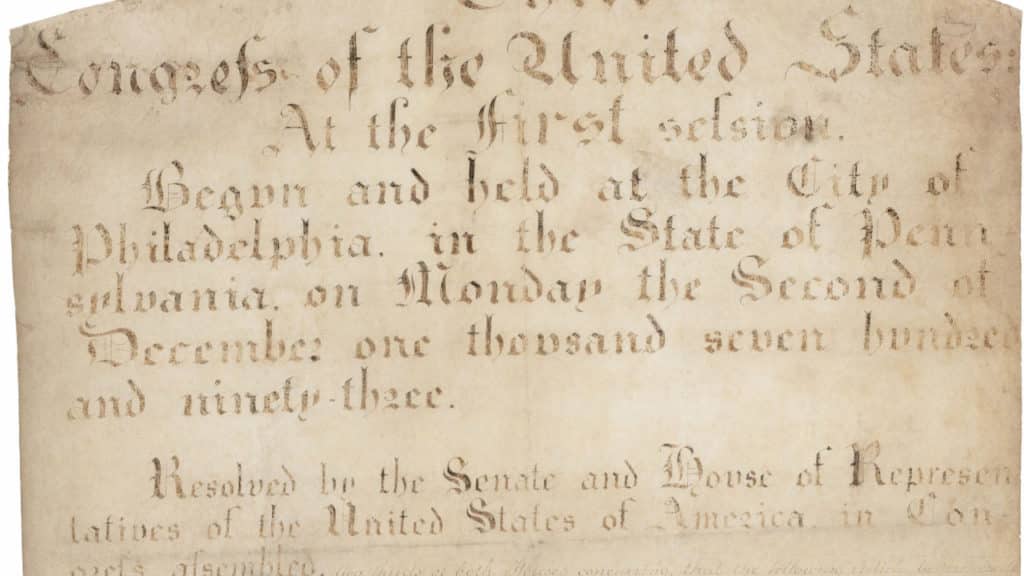 Third
Congreſs of the United States:
At the First seſsion.
Begun and held at the City of
Philadelphia, in the State of Penn-
sylvania, on Monday the Second of
December one thousand seven hundred
and ninety-three.
Resolved by the Senate and House of Represen
tatives of the United States of America, in Con-
greſs aſsembled, two thirds of both Houses concurring, that the following article be